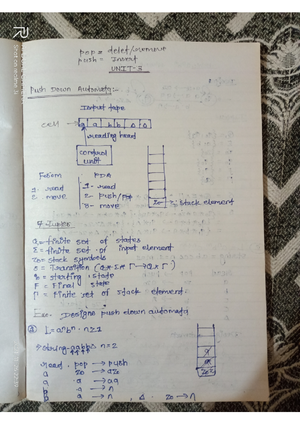 pop = delet/remove
push = Insert
UNIT-2
Push Down Automata:-
Input tape
cell → a a b b Δ Δ
reading head
control unit
PDA
1- read
1- read
2- move
2- push/pop
3- move
Z₀ → stack element
7 Tuples
Q = finite set of states
Σ = finite set of input element
δ = Transition
q₀ = starting state
F = Final state
Γ = finite set of stack element.
Designe push down automata
L = aⁿbⁿ n≥1
string = aabb n=2
read pop → push
a z₀ → az₀
a a → aa
b a → Λ
b a → Λ, Δ z₀ → Λ